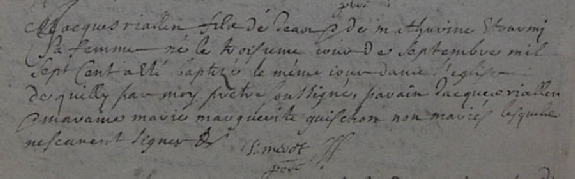 Jacques riallen fils de Jean & de mathurine
sa femme né le troisieme jour de septembre mil
sept cent a été baptizé le même jour dans l'eglise
de quilly par moy prêtre soussigné, parain Jacques riallen
& maraine marie marguerite guischon non mariés lesquels
ne scavent signer &